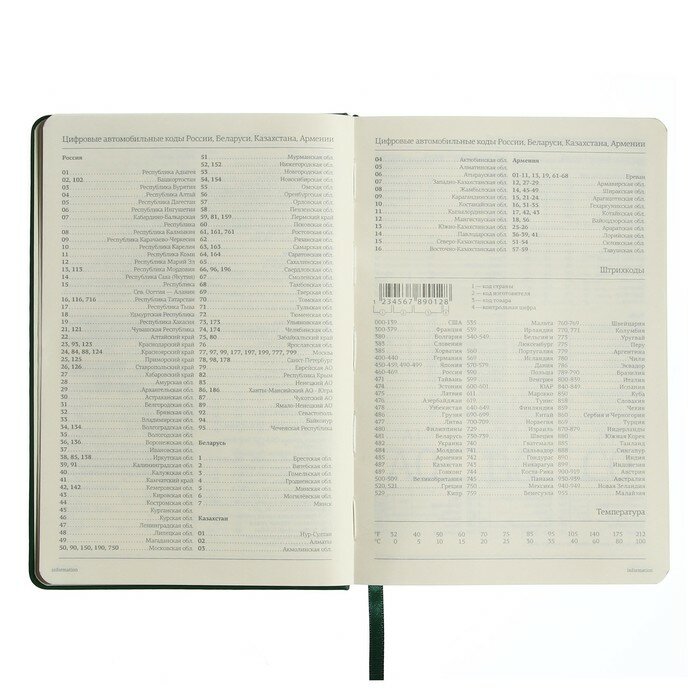 Цифровые автомобильные коды России, Беларуси, Казахстана, Армении
Россия
01 Республика Адыгея
02, 102 Башкортостан
03 Республика Бурятия
04 Республика Алтай
05 Республика Дагестан
06 Республика Ингушетия
07 Кабардино-Балкарская
Республика
08 Республика Калмыкия
09 Республика Карачаево-Черкесия
10 Республика Карелия
11 Республика Коми
12 Республика Марий Эл
13, 113 Республика Мордовия
14 Республика Саха (Якутия)
15 Республика
Сев. Осетия — Алания
16, 116, 716 Республика Татарстан
17 Республика Тыва
18 Удмуртская Республика
19 Республика Хакасия
21, 121 Чувашская Республика
22 Алтайский край
23, 93, 123 Краснодарский край
24, 84, 88, 124 Красноярский край
25, 125 Приморский край
26, 126 Ставропольский край
27 Хабаровский край
28 Амурская обл.
29 Архангельская обл.
30 Астраханская обл.
31 Белгородская обл.
32 Брянская обл.
33 Владимирская обл.
34, 134 Волгоградская обл.
35 Вологодская обл.
36, 136 Воронежская обл.
37 Ивановская обл.
38, 85, 138 Иркутская обл.
39, 91 Калининградская обл.
40 Калужская обл.
41 Камчатский край
42, 142 Кемеровская обл.
43 Кировская обл.
44 Костромская обл.
45 Курганская обл.
46 Курская обл.
47 Ленинградская обл.
48 Липецкая обл.
49 Магаданская обл.
50, 90, 150, 190, 750 Московская обл.
51 Мурманская обл.
52, 152 Нижегородская обл.
53 Новгородская обл.
54, 154 Новосибирская обл.
55 Омская обл.
56 Оренбургская обл.
57 Орловская обл.
58 Пензенская обл.
59, 81, 159 Пермский край
60 Псковская обл.
61, 161, 761 Ростовская обл.
62 Рязанская обл.
63, 163 Самарская обл.
64, 164 Саратовская обл.
65 Сахалинская обл.
66, 96, 196 Свердловская обл.
67 Смоленская обл.
68 Тамбовская обл.
69 Тверская обл.
70 Томская обл.
71 Тульская обл.
72 Тюменская обл.
73, 173 Ульяновская обл.
74, 174 Челябинская обл.
75, 80 Забайкальский край
76 Ярославская обл.
77, 97, 99, 177, 197, 199, 777, 797 Москва
78, 98, 178 Санкт-Петербург
79 Еврейская АО
82 Республика Крым
83 Ненецкий АО
86, 186 Ханты-Мансийский АО - Югра
87 Чукотский АО
89 Ямало-Ненецкий АО
92 Севастополь
94 Байконур
95 Чеченская Республика
Беларусь
1 Брестская обл.
2 Витебская обл.
3 Гомельская обл.
4 Гродненская обл.
5 Минская обл.
6 Могилёвская обл.
7 Минск
Казахстан
01 Нур-Султан
02 Алматы
03 Акмолинская обл.
information
Цифровые автомобильные коды России, Беларуси, Казахстана, Армении
04 Актюбинская обл.
05 Алматинская обл.
06 Атырауская обл.
07 Западно-Казахстанская обл.
08 Жамбылская обл.
09 Карагандинская обл.
10 Костанайская обл.
11 Кызылординская обл.
12 Мангистауская обл.
13 Южно-Казахстанская обл.
14 Павлодарская обл.
15 Северо-Казахстанская обл.
16 Восточно-Казахстанская обл.
Армения
01-11, 13, 19, 61-68 Ереван
12, 27-29 Армавирская обл.
14, 45-49 Ширакская обл.
15, 21-24 Арагацотнская обл.
16, 51-55 Гехаркуникская обл.
17, 42, 43 Котайкская обл.
18, 56 Вайоцдзорская обл.
25, 26 Араратская обл.
36-39, 41 Лорийская обл.
51-54 Сюникская обл.
57-59 Тавушская обл.
Штрихкоды
1 234567 890128
1 — код страны
2 — код изготовителя
3 — код товара
4 — контрольная цифра
000-139 США
300-379 Франция
380 Болгария
383 Словения
385 Хорватия
400-440 Германия
450-459, 490-499 Япония
460-469 Россия
471 Тайвань
474 Эстония
475 Латвия
476 Азербайджан
478 Узбекистан
486 Грузия
477 Литва
480 Филиппины
481 Беларусь
484 Молдова
485 Армения
487 Казахстан
489 Гонконг
500-509 Великобритания
520, 521 Греция
529 Кипр
535 Мальта
539 Ирландия
540-549 Бельгия и
Люксембург
560 Португалия
569 Исландия
570-579 Дания
590 Польша
599 Венгрия
600, 601 ЮАР
611 Марокко
619 Тунис
640-649 Финляндия
690-699 Китай
700-709 Норвегия
729 Израиль
730-739 Швеция
741 Сальвадор
742 Гондурас
743 Никарагуа
744 Коста-Рика
745 Панама
750 Мексика
759 Венесуэла
760-769 Швейцария
770, 771 Колумбия
773 Уругвай
775 Перу
779 Аргентина
780 Чили
786 Эквадор
789-790 Бразилия
800-839 Италия
840-849 Испания
850 Куба
858 Словакия
859 Чехия
860 Сербия и Черногория
869 Турция
870-879 Нидерланды
880 Южная Корея
885 Таиланд
888 Сингапур
890 Индия
899 Индонезия
900-919 Австрия
930-939 Австралия
940-949 Новая Зеландия
955 Малайзия
Температура
°F 32 40 50 60 70 75 85 95 105 140 175 212
°C 0 5 10 15 20 25 30 35 40 60 80 100
information